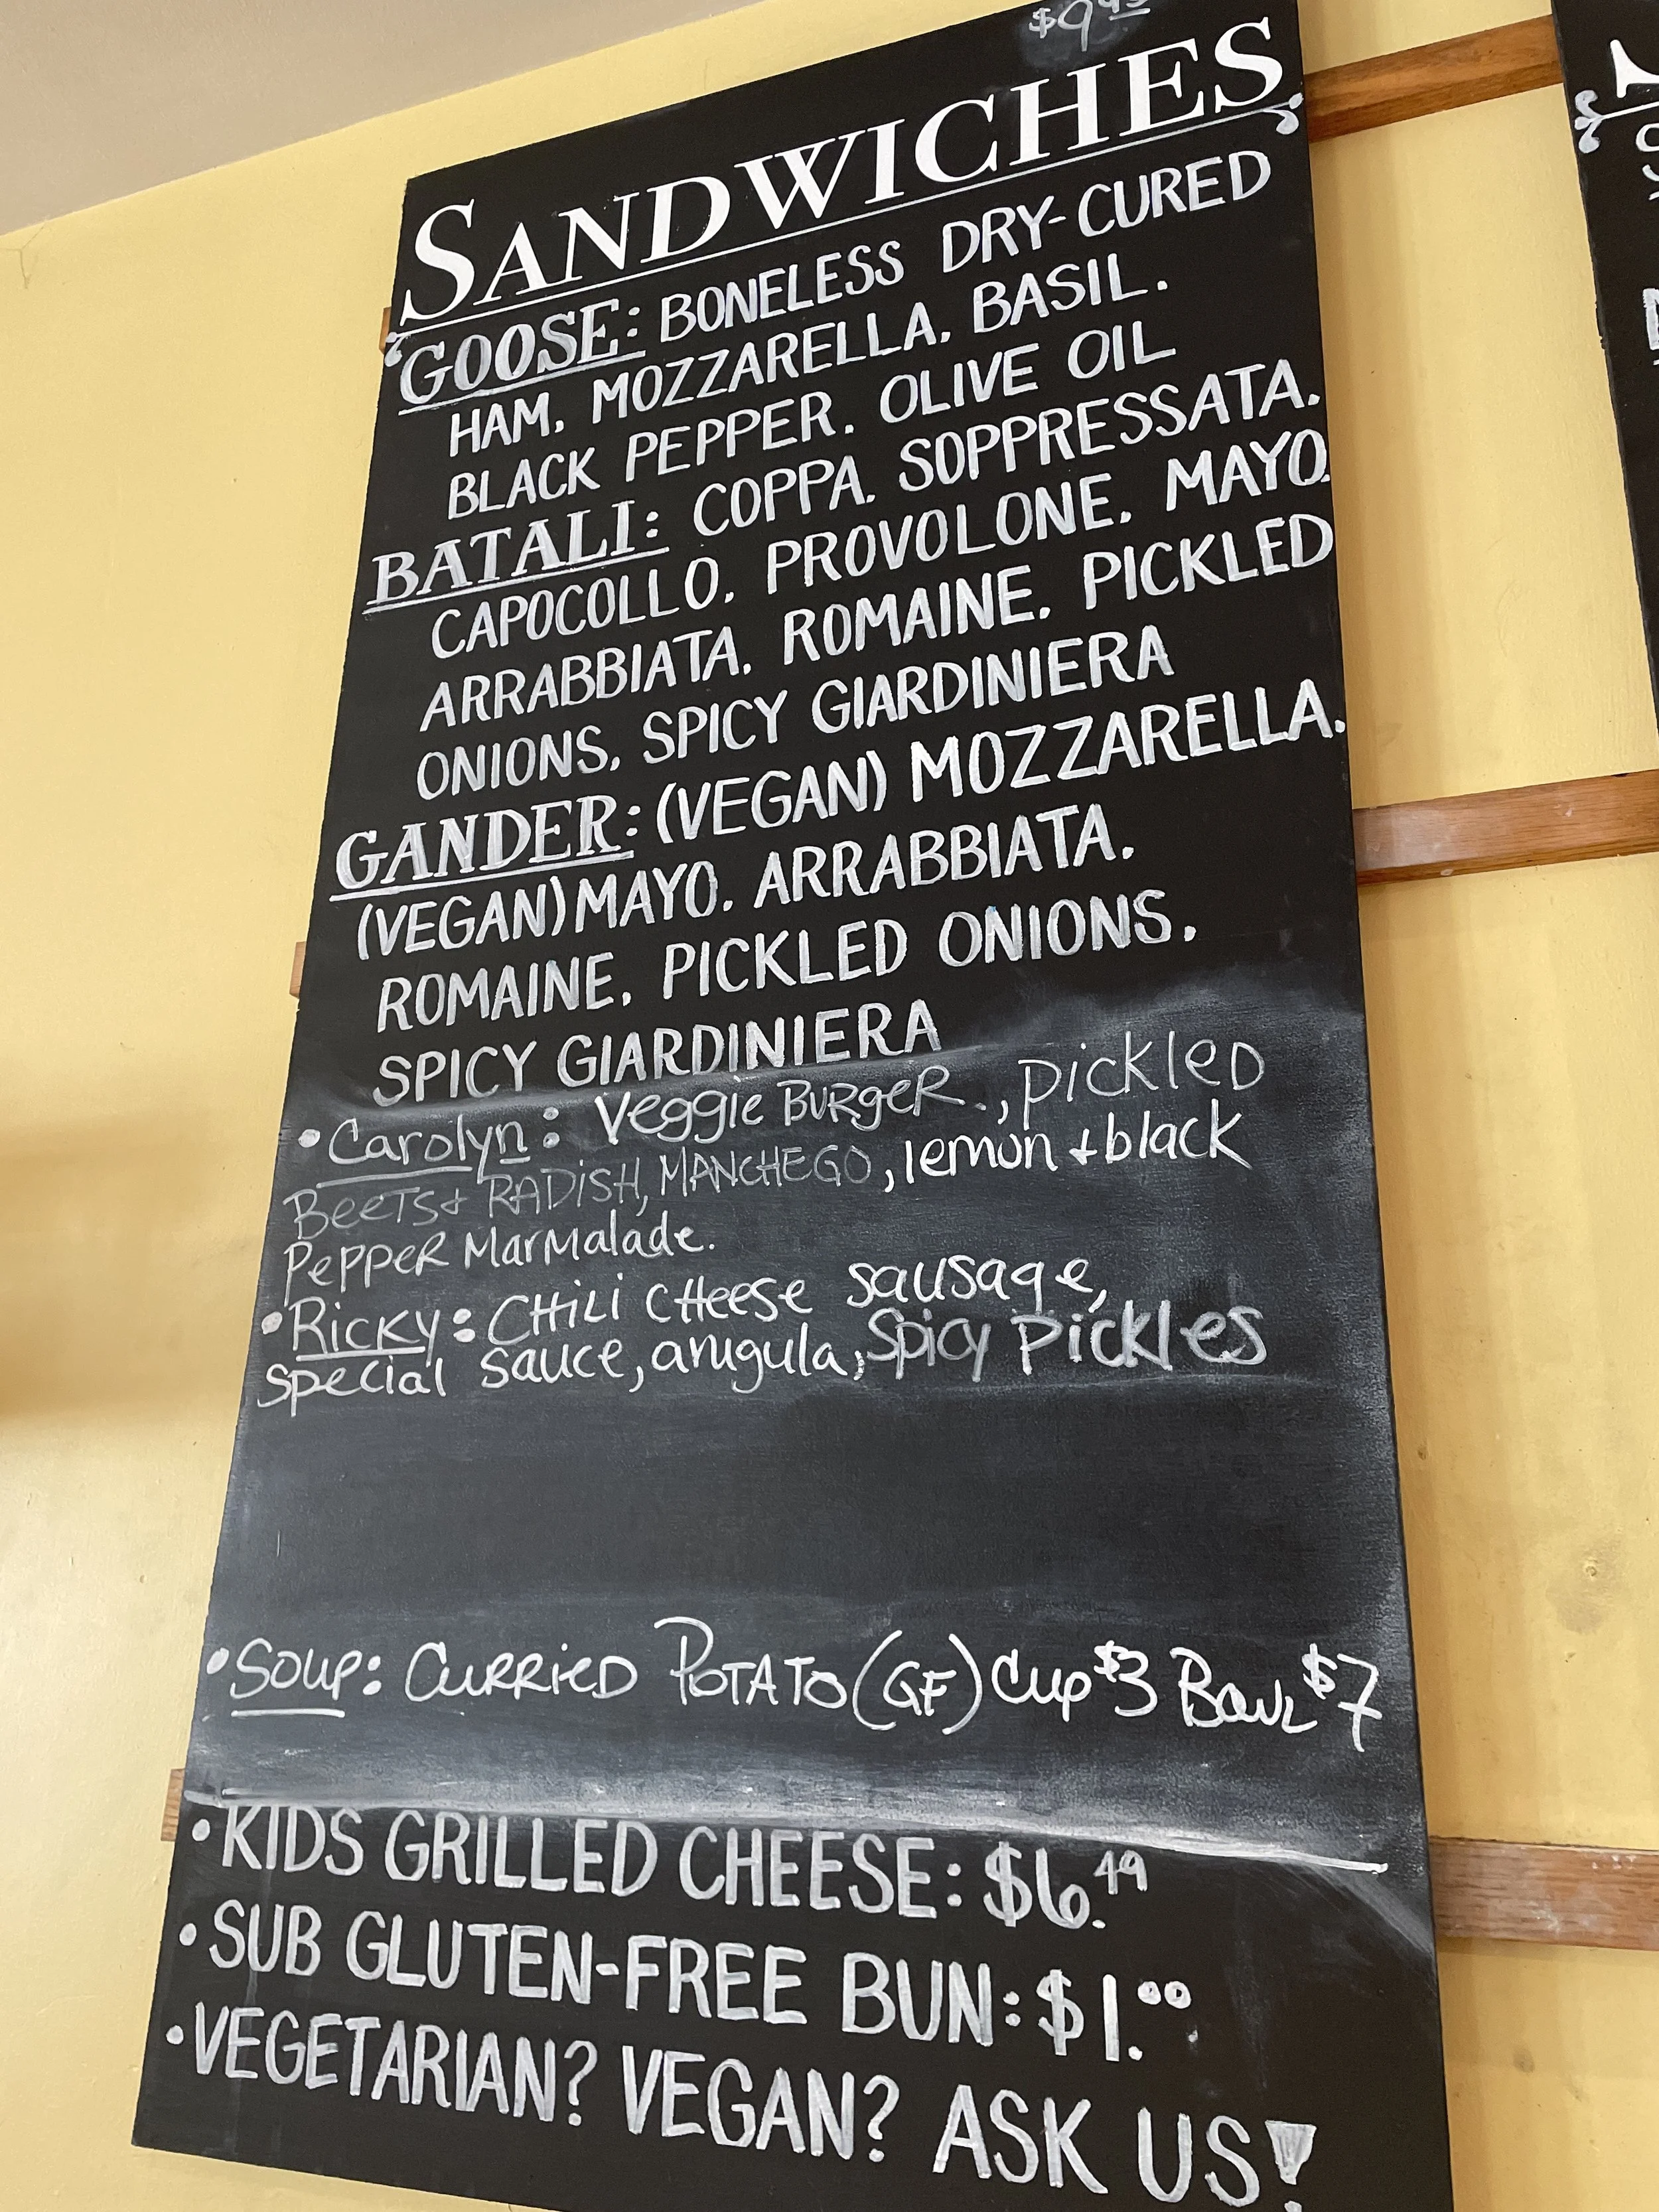 SANDWICHES
GOOSE: BONELESS DRY-CURED
HAM. MOZZARELLA. BASIL.
BLACK PEPPER. OLIVE OIL
BATALI: COPPA. SOPPRESSATA.
CAPOCOLLO. PROVOLONE. MAYO.
ARRABBIATA. ROMAINE. PICKLED
ONIONS. SPICY GIARDINIERA
GANDER: (VEGAN) MOZZARELLA.
(VEGAN) MAYO. ARRABBIATA.
ROMAINE. PICKLED ONIONS.
SPICY GIARDINIERA
• Carolyn: Veggie BURgeR., pickleD
BeeTS + RADiSH, MANCHEGO, lemon + black
PePPeR MarMalade.
• Ricky: CHiLi CHeese sausage,
special sauce, arugula, Spicy Pickles
• Soup: CURRieD POTATO (GF) Cup $3 BowL $7
• KIDS GRILLED CHEESE: $6.49
• SUB GLUTEN-FREE BUN: $1.00
• VEGETARIAN? VEGAN? ASK US!